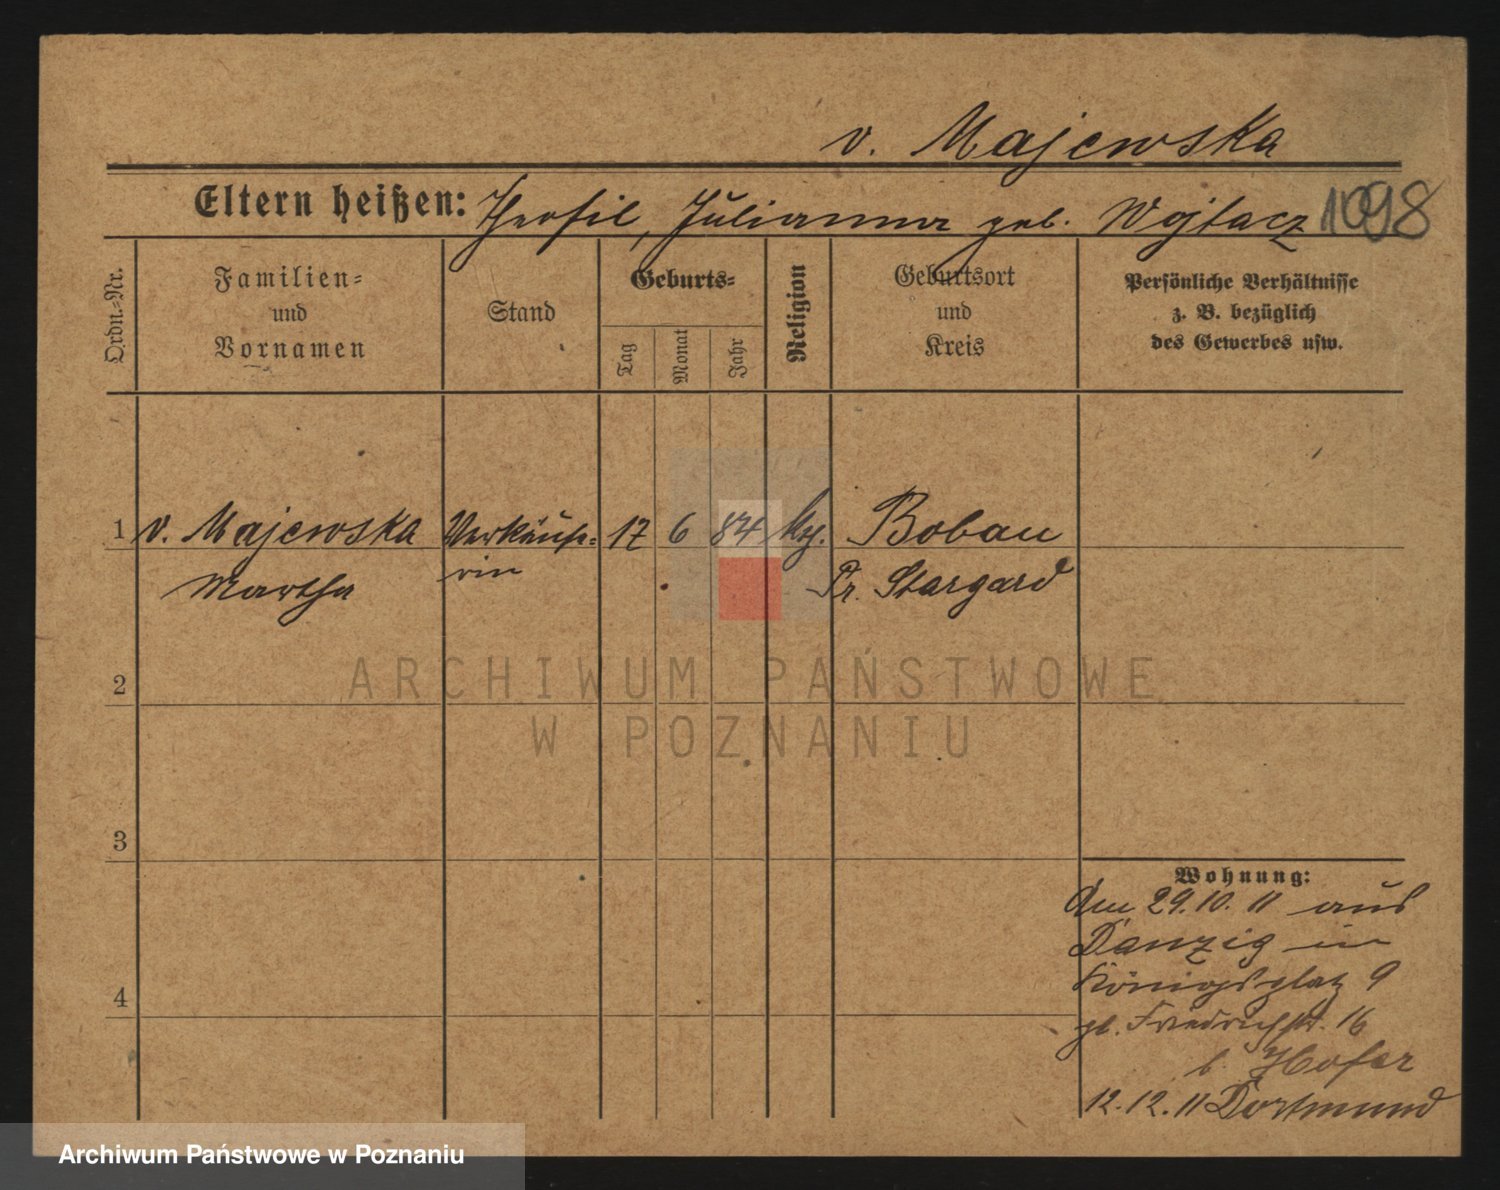 v. Majewska
Eltern heißen: Theofil, Julianna geb. Wojtacz 1098
Ordn.-Nr.
Familien-
und
Vornamen
Stand
Geburts-
Tag
Monat
Jahr
Religion
Geburtsort
und
Kreis
Persönliche Verhältnisse
z. B. bezüglich
des Gewerbes usw.
1 v. Majewska Verkäufe- 17 6 84 Bobau
Martha rin Pr. Stargard
2
ARCHIWUM PAŃSTWOWE
W POZNANIU
3
Wohnung:
Am 29.10.11 aus
Danzig in
Königsplatz 9
Friedrichstr. 16
b. Hofer
12.12.11 Dortmund
4
Archiwum Państwowe w Poznaniu